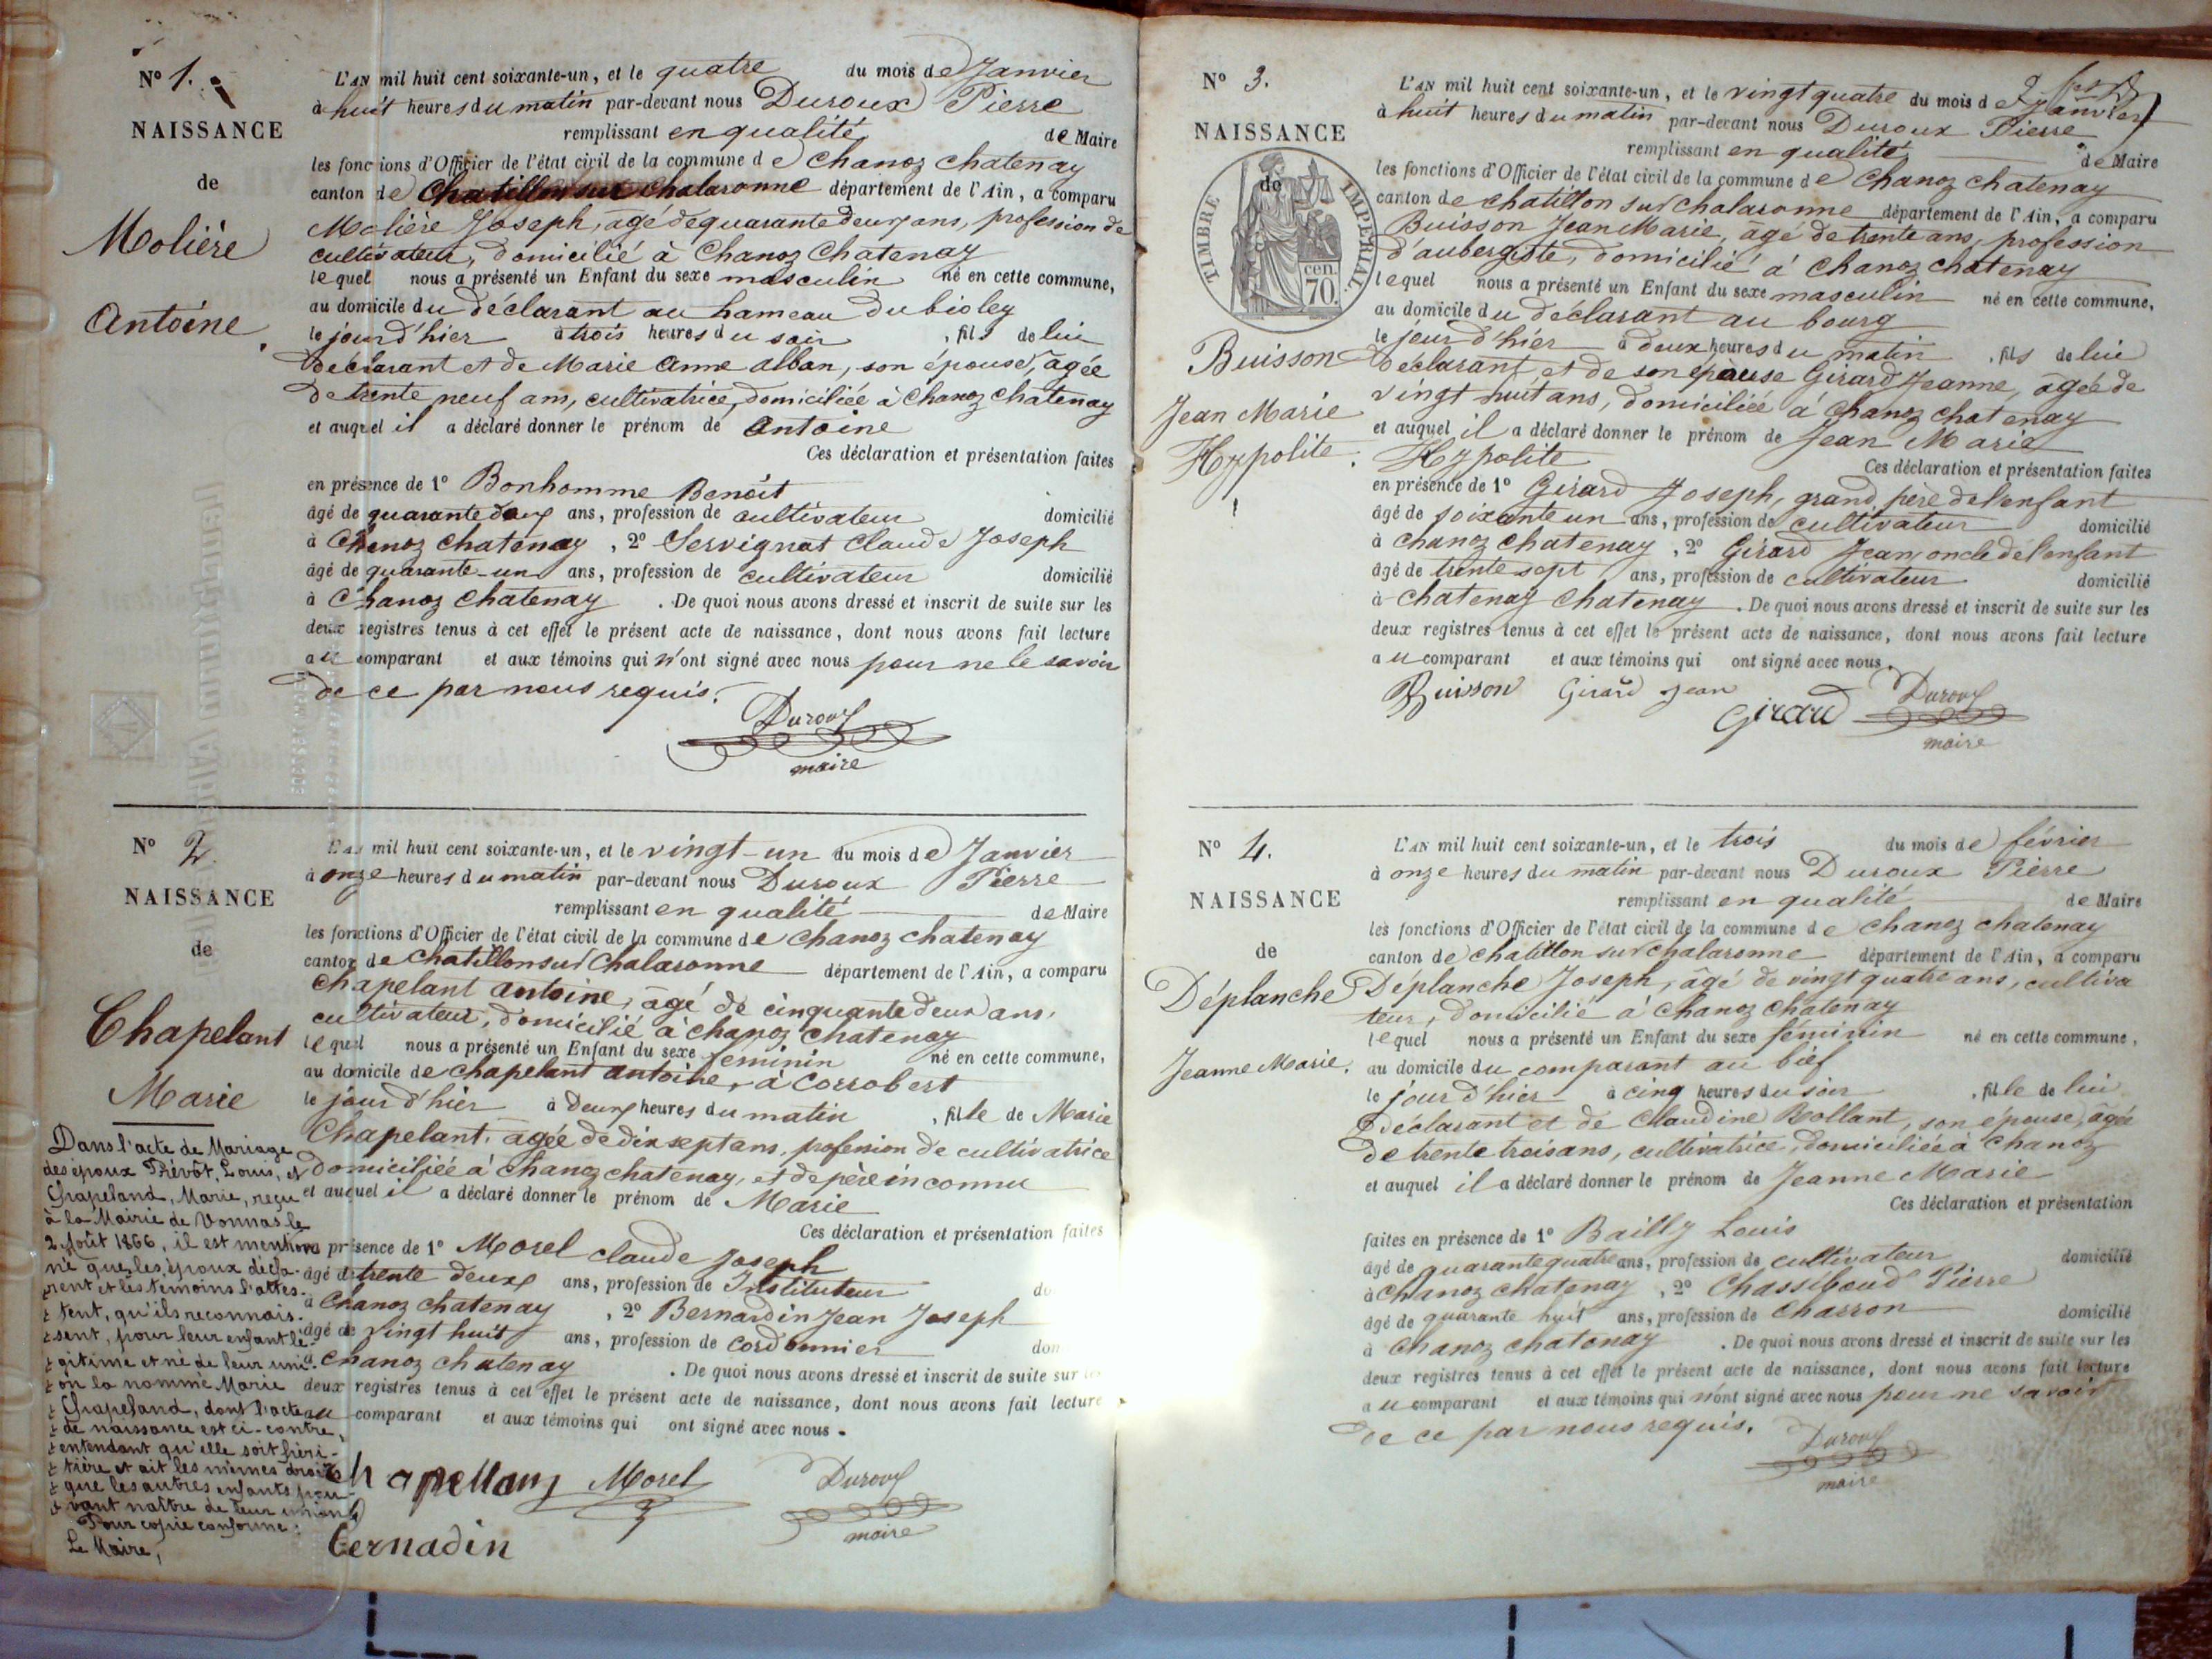 N° 1.
NAISSANCE
de
Molière
Antoine.
L'AN mil huit cent soixante-un, et le quatre du mois de Janvier
à huit heures du matin par-devant nous Duroux Pierre
remplissant en qualité de Maire
les fonctions d'Officier de l'état civil de la commune de Chanoz Chatenay
canton de Chatillon sur Chalaronne département de l'Ain, a comparu
Molière Joseph, âgé de quarante deux ans, profession de
cultivateur, domicilié à Chanoz Chatenay
lequel nous a présenté un Enfant du sexe masculin né en cette commune,
au domicile du déclarant au hameau du bioley
le jour d'hier à trois heures du soir, fils de lui
déclarant et de Marie Anne Alban, son épouse, âgée
de trente neuf ans, cultivatrice, domiciliée à Chanoz Chatenay
et auquel il a déclaré donner le prénom de Antoine
Ces déclaration et présentation faites
en présence de 1° Bonhomme Benoit
âgé de quarante deux ans, profession de cultivateur domicilié
à Chanoz Chatenay, 2° Servignat Claude Joseph
âgé de quarante-un ans, profession de cultivateur domicilié
à Chanoz Chatenay. De quoi nous avons dressé et inscrit de suite sur les
deux registres tenus à cet effet le présent acte de naissance, dont nous avons fait lecture
au comparant et aux témoins qui n'ont signé avec nous pour ne le savoir
de ce par nous requis.
Duroux
maire
N° 2.
NAISSANCE
de
Chapelant
Marie
L'AN mil huit cent soixante-un, et le vingt-un du mois de Janvier
à onze heures du matin par-devant nous Duroux Pierre
remplissant en qualité de Maire
les fonctions d'Officier de l'état civil de la commune de Chanoz Chatenay
canton de Chatillon sur Chalaronne département de l'Ain, a comparu
Chapelant Antoine, âgé de cinquante deux ans,
cultivateur, domicilié à Chanoz Chatenay
lequel nous a présenté un Enfant du sexe féminin né en cette commune,
au domicile de Chapelant Antoine, à Corrobert
le jour d'hier à deux heures du matin, fille de Marie
Chapelant, âgée de dix sept ans, profession de cultivatrice
domiciliée à Chanoz Chatenay, et de père inconnu
et auquel il a déclaré donner le prénom de Marie
Ces déclaration et présentation faites
en présence de 1° Morel Claude Joseph
âgé de trente deux ans, profession de Instituteur do
à Chanoz Chatenay, 2° Bernardin Jean Joseph
âgé de vingt huit ans, profession de Cordonnier don
à Chanoz Chatenay. De quoi nous avons dressé et inscrit de suite sur les
deux registres tenus à cet effet le présent acte de naissance, dont nous avons fait lecture
au comparant et aux témoins qui ont signé avec nous.
Chapellant Morel Duroux
maire
Bernadin
Dans l'acte de Mariage
des époux Prévôt, Louis, et
Chapeland, Marie, reçu
à la Mairie de Vonnas le
2 Août 1866, il est mention
né que les époux décla-
rent et les témoins l'attes-
tent, qu'ils reconnais-
sent, pour leur enfant lé-
gitime et né de leur uni-
on la nommé Marie
Chapeland, dont l'acte
de naissance est ci-contre,
entendant qu'elle soit héri-
tière et ait les mêmes droits
que les autres enfants pou-
vant naître de leur union
Pour copie conforme:
Le Maire,
N° 3.
NAISSANCE
de
TIMBRE IMPERIAL
70 cen.
Buisson
Jean Marie
Hypolite.
L'AN mil huit cent soixante-un, et le vingt quatre du mois de Janvier
à huit heures du matin par-devant nous Duroux Pierre
remplissant en qualité de Maire
les fonctions d'Officier de l'état civil de la commune de Chanoz Chatenay
canton de Chatillon sur Chalaronne département de l'Ain, a comparu
Buisson Jean Marie, âgé de trente ans, profession
d'aubergiste, domicilié à Chanoz Chatenay
lequel nous a présenté un Enfant du sexe masculin né en cette commune,
au domicile du déclarant au bourg
le jour d'hier à deux heures du matin, fils de lui
déclarant et de son épouse Girard Jeanne, âgée de
vingt huit ans, domiciliée à Chanoz Chatenay
et auquel il a déclaré donner le prénom de Jean Marie
Hypolite
Ces déclaration et présentation faites
en présence de 1° Girard Joseph, grand père de l'enfant
âgé de soixante un ans, profession de cultivateur domicilié
à Chanoz Chatenay, 2° Girard Jean, oncle de l'enfant
âgé de trente sept ans, profession de cultivateur domicilié
à Chatenay Chatenay. De quoi nous avons dressé et inscrit de suite sur les
deux registres tenus à cet effet le présent acte de naissance, dont nous avons fait lecture
au comparant et aux témoins qui ont signé avec nous.
Buisson Girard Jean Girard Duroux
maire
N° 4.
NAISSANCE
de
Déplanche
Jeanne Marie.
L'AN mil huit cent soixante-un, et le trois du mois de février
à onze heures du matin par-devant nous Duroux Pierre
remplissant en qualité de Maire
les fonctions d'Officier de l'état civil de la commune de Chanoz Chatenay
canton de Chatillon sur Chalaronne département de l'Ain, a comparu
Déplanche Joseph, âgé de vingt quatre ans, cultiva
teur, domicilié à Chanoz Chatenay
lequel nous a présenté un Enfant du sexe féminin né en cette commune,
au domicile du comparant au bief
le jour d'hier à cinq heures du soir, fille de lui
déclarant et de Claudine Rollant, son épouse, âgée
de trente trois ans, cultivatrice, domiciliée à Chanoz
et auquel il a déclaré donner le prénom de Jeanne Marie
Ces déclaration et présentation
faites en présence de 1° Bailly Louis
âgé de quarante quatre ans, profession de cultivateur domicilié
à Chanoz Chatenay, 2° Chassiboud Pierre
âgé de quarante huit ans, profession de Charron domicilié
à Chanoz Chatenay. De quoi nous avons dressé et inscrit de suite sur les
deux registres tenus à cet effet le présent acte de naissance, dont nous avons fait lecture
au comparant et aux témoins qui n'ont signé avec nous pour ne savoir
de ce par nous requis.
Duroux
maire